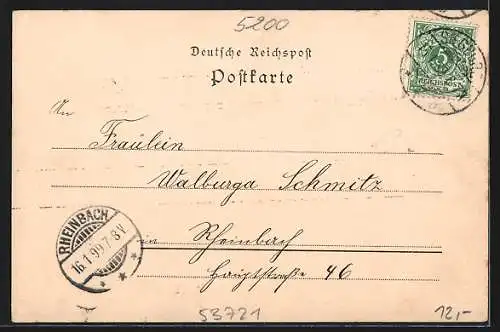 5200
Deutsche Reichspost
Postkarte
An
Fräulein
Walburga Schmitz
in Rheinbach
Hauptstraße 46
RHEINBACH
16.1.99.7-8V.
5
REICHSPOST
53721
12,-